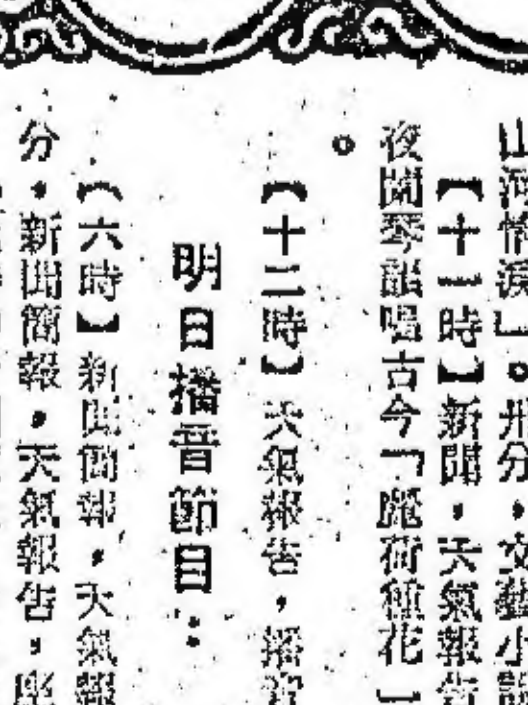 山河情淚」。卅分，文藝小說
【十一時】新聞，天氣報告
夜闌琴韻唱古今「魔荷種花」
。
【十二時】天氣報告，播音
明日播音節目：
【六時】新聞簡報，天氣報
分，新聞簡報，天氣報告，